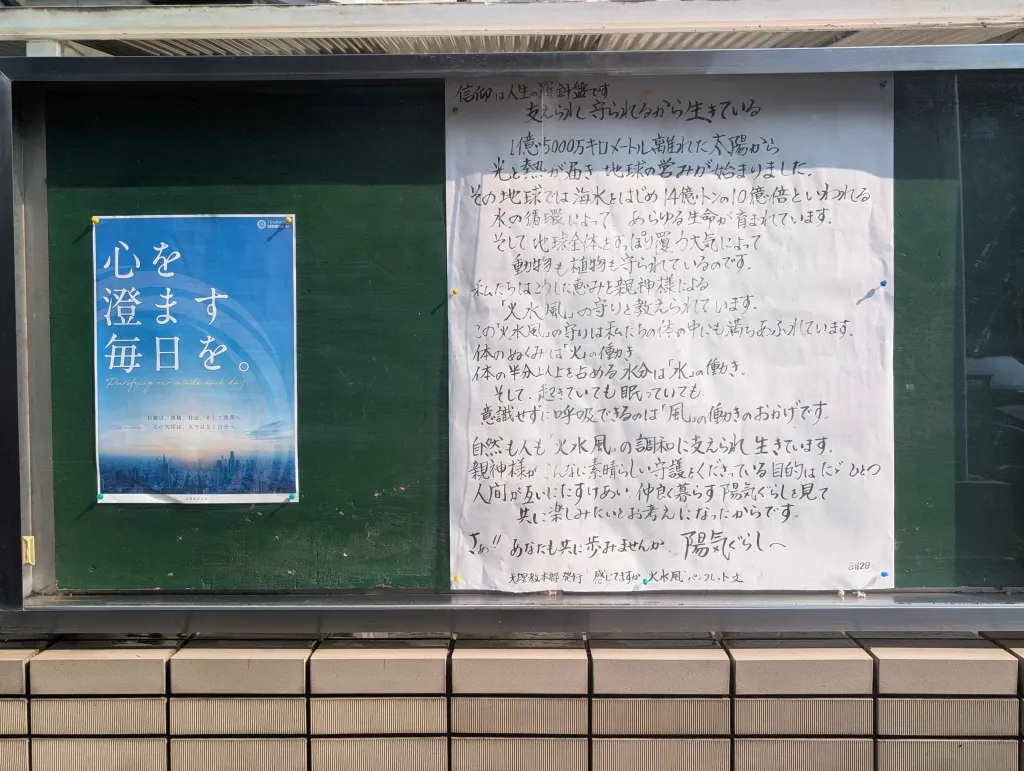 心を
澄ます
毎日を。
Purifying our minds each day.
信仰は人生の羅針盤です
支えられ守られるから生きている
1億5000万キロメートル離れた太陽から
光と熱が届き地球の営みが始まりました。
その地球では海水をはじめ14億トンの10億倍といわれる
水の循環によって あらゆる生命が育まれています。
そして地球全体をすっぽり覆う大気によって
動物も植物も守られているのです。
私たちはこうした恵みを親神様による
「火水風」の守りと教えられています。
この「火水風」の守りは私たちの体の中にも満ちあふれています。
体のぬくみは「火」の働き
体の半分以上を占める水分は「水」の働き。
そして、起きていても眠っていても
意識せずに呼吸できるのは「風」の働きのおかげです。
自然も人も「火水風」の調和に支えられ生きています。
親神様がこんなに素晴らしい守護をくださっている目的はただひとつ
人間が互いにたすけあい 仲良く暮らす陽気ぐらしを見て
共に楽しみたいとお考えになったからです。
さぁ!! あなたも共に歩みませんか 陽気ぐらしへ
天理教本部発行 "感じてますか 火水風" パンフレット文